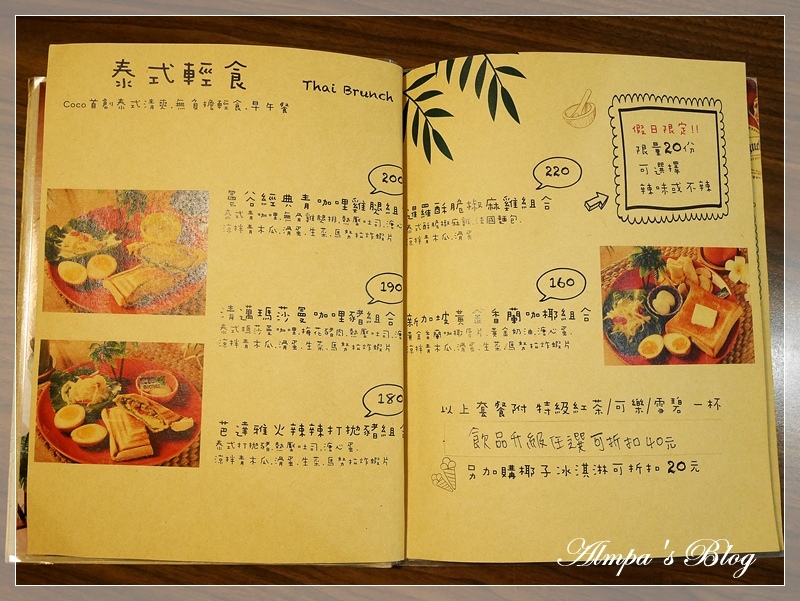 泰式輕食
Thai Brunch
Coco首創泰式清爽.無負擔輕食.早午餐
200
曼谷經典青咖哩雞腿組
泰式青咖哩.無骨雞腿排.熱壓吐司.溏心
涼拌青木瓜.滑蛋.生菜.馬努拉炸蝦片
190
清邁瑪莎曼咖哩豬組合
泰式瑪莎曼咖哩.梅花豬肉.熱壓吐司.溏
涼拌青木瓜.滑蛋.生菜.馬努拉炸蝦片
180
芭達雅火辣辣打拋豬組
泰式打拋豬.熱壓吐司.溏心蛋.
涼拌青木瓜.滑蛋.生菜.馬努拉炸蝦片
假日限定!!
限量20份
可選擇
辣味或不辣
220
暹羅酥脆椒麻雞組合
泰式酥脆椒麻雞.法國麵包.
涼拌青木瓜.滑蛋
160
新加坡黃金香蘭咖椰組合
黃金香蘭咖椰厚片.黃金奶油.溏心蛋.
涼拌青木瓜.滑蛋.生菜.馬努拉炸蝦片
以上套餐附 特級紅茶/可樂/雪碧 一杯
飲品升級任選可折扣40元
另加購椰子冰淇淋可折扣 20元
Almpa's Blog